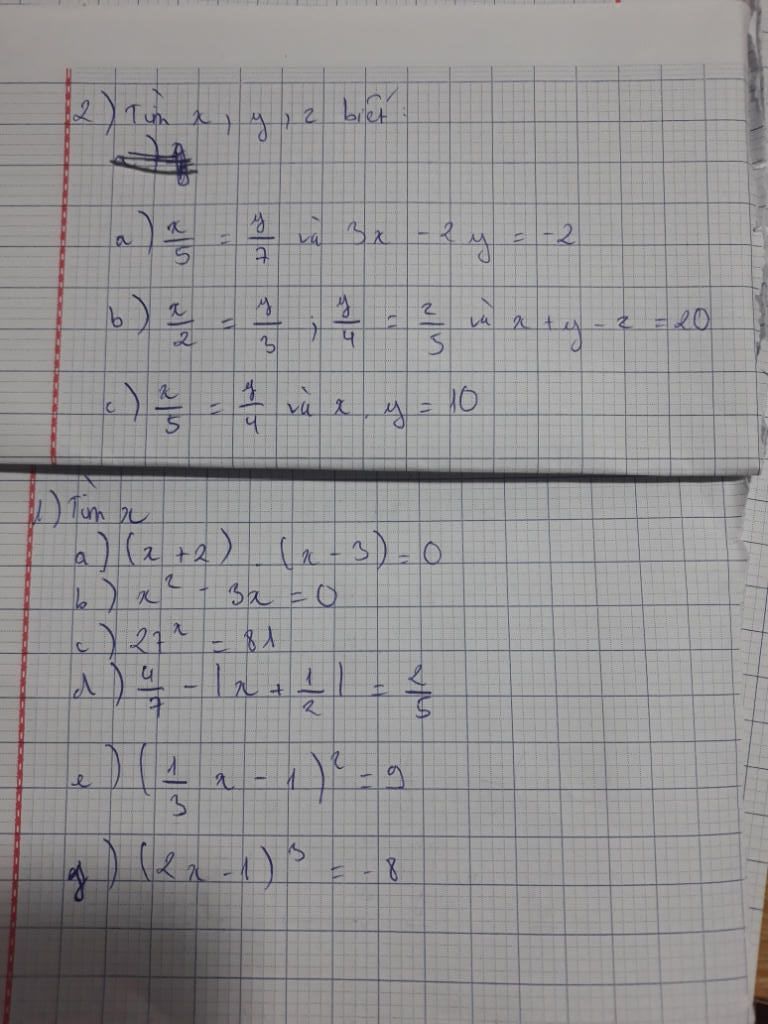 2) Tìm x, y, z biết:
a) x/5 = y/7 và 3x - 2y = -2
b) x/2 = y/3 ; y/4 = z/5 và x + y - z = 20
c) x/5 = y/4 và x . y = 10
1) Tìm x
a) (x + 2) . (x - 3) = 0
b) x² - 3x = 0
c) 27ˣ = 81
d) 4/7 - |x + 1/2| = 2/5
e) (1/3 x - 1)² = 9
g) (2x - 1)³ = -8